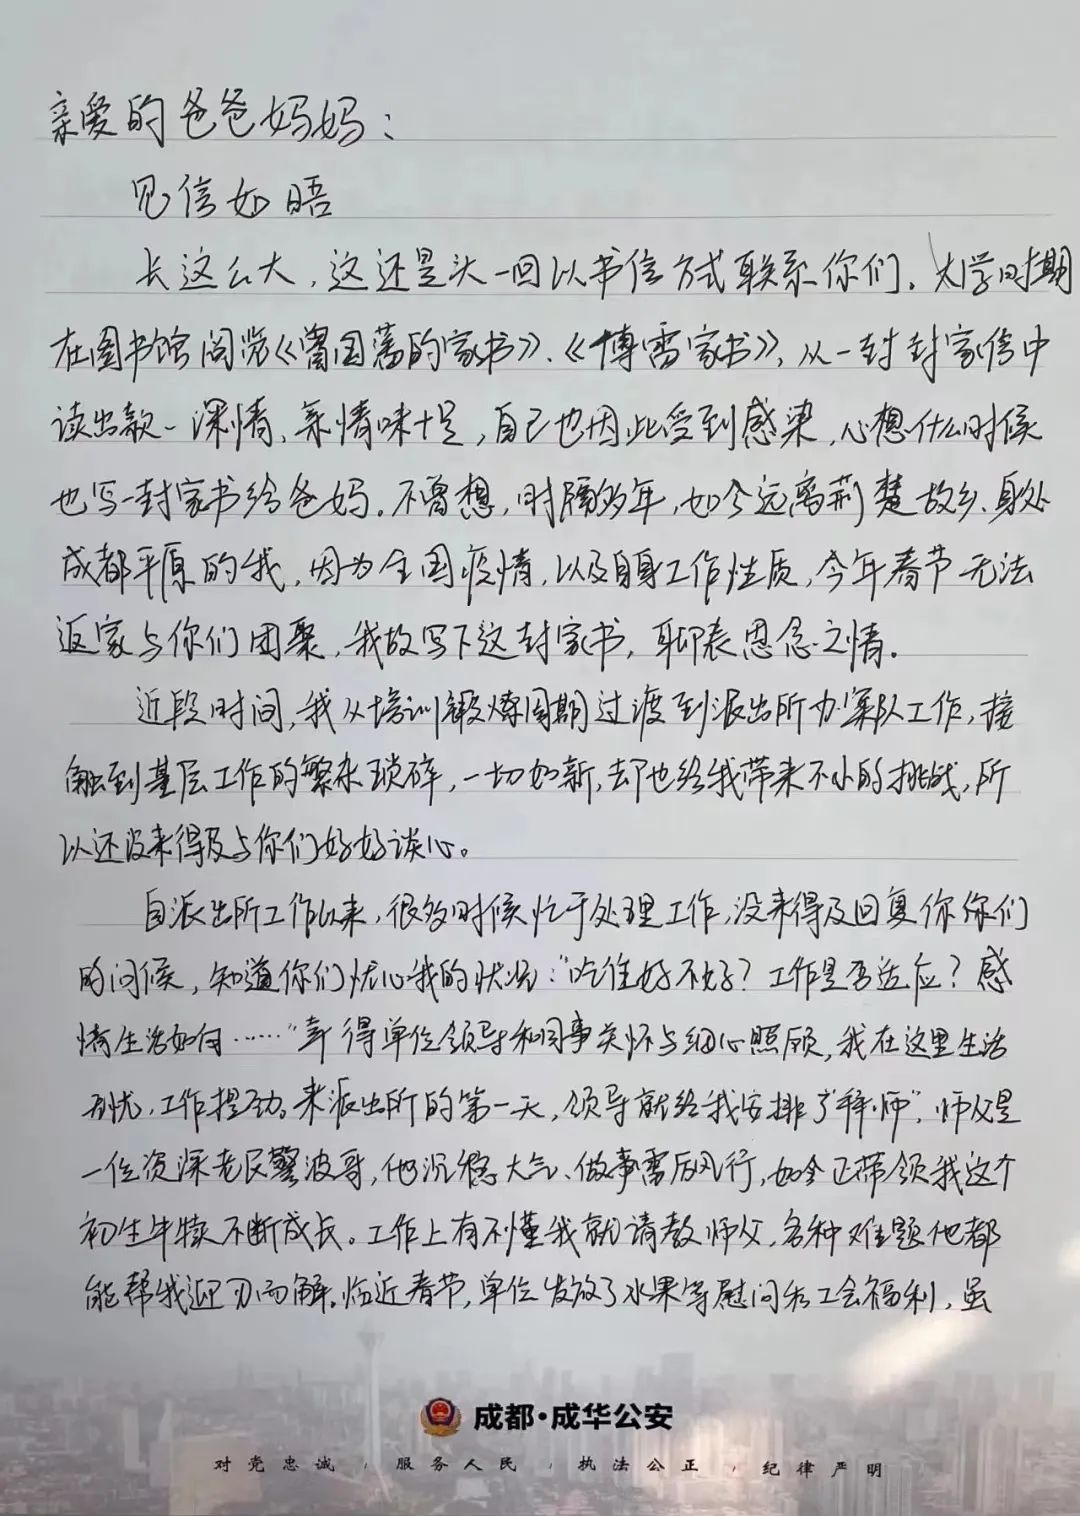 亲爱的爸爸妈妈：
见信如晤
长这么大，这还是头一回以书信方式联系你们。大学时期
在图书馆阅览《曾国藩的家书》、《傅雷家书》，从一封封家信中
读出款款深情、亲情味十足，自己也因此受到感染，心想什么时候
也写一封家书给爸妈。不曾想，时隔多年，如今远离荆楚故乡、身处
成都平原的我，因为全国疫情，以及自身工作性质，今年春节无法
返家与你们团聚，我故写下这封家书，聊表思念之情。
近段时间，我从培训锻炼周期过渡到派出所办案队工作，接
触到基层工作的繁杂琐碎，一切如新，却也给我带来不小的挑战，所
以还没来得及与你们好好谈心。
自派出所工作以来，很多时候忙于处理工作，没来得及回复你你们
的问候，知道你们忧心我的状况：“吃住好不好？工作是否适应？感
情生活如何……”幸得单位领导和同事关怀与细心照顾，我在这里生活
无忧，工作提劲。来派出所的第一天，领导就给我安排了“拜师”，师父是
一位资深老民警波哥，他沉稳大气、做事雷厉风行，如今正带领我这个
初生牛犊不断成长。工作上有不懂我就请教师父，各种难题他都
能帮我迎刃而解。临近春节，单位发放了水果等慰问和工会福利，虽
成都·成华公安
对党忠诚 / 服务人民 / 执法公正 / 纪律严明